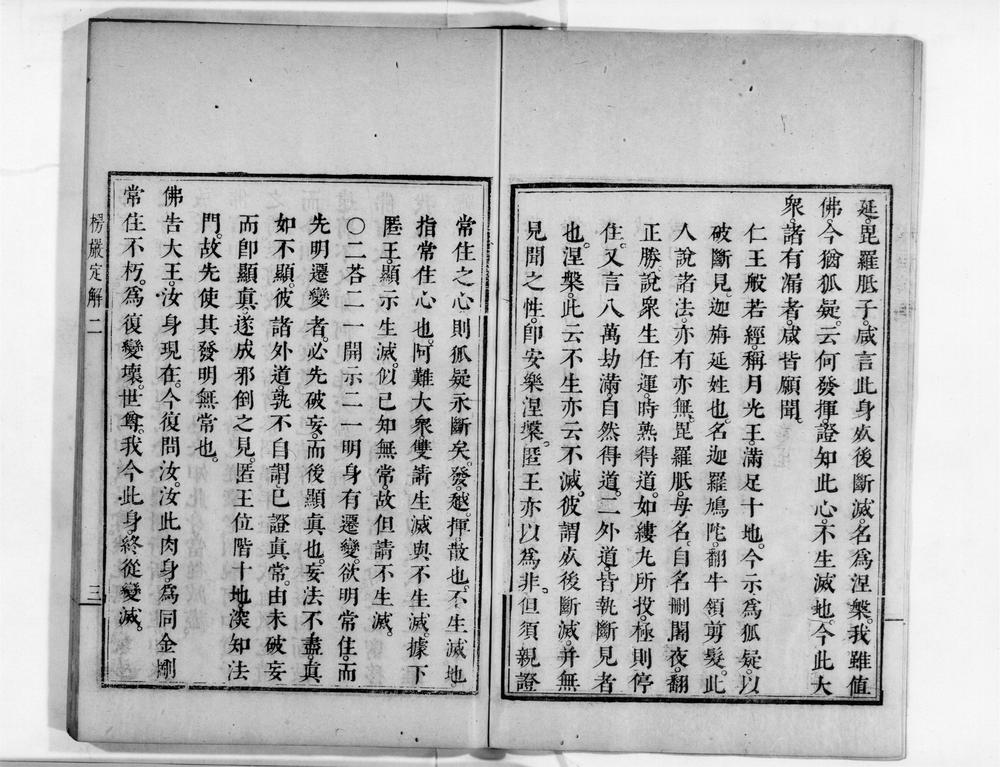 延。毘羅胝子。咸言此身死後斷滅。名為涅槃。我雖值
佛。今猶狐疑。云何發揮。證知此心。不生滅地。今此大
眾。諸有漏者。咸皆願聞。
仁王般若經。稱月光王。滿足十地。今示為狐疑。以
破斷見。迦旃延姓也。名迦羅鳩陀。翻牛領剪髮。此
人說諸法。亦有亦無。毘羅胝。母名。自名刪闍夜。翻
正勝。說眾生任運。時熟得道。如縷丸所投。極則停
住。又言八萬劫滿。自然得道。二外道。皆執斷見者
也。涅槃。此云不生亦云不滅。彼謂死後斷滅。并無
見聞之性。即安樂涅槃。匿王亦以為非。但須親證
常住之心。則狐疑永斷矣。發越。揮散也。不生滅地。
指常住心也。阿難大眾雙請生滅與不生滅。據下
匿王。顯示生滅。似已知無常。故但請不生滅。
〇二荅二一開示二一明身有遷變。欲明常住。而
先明遷變者。必先破妄。而後顯真也。妄法不盡。真
如不顯。彼諸外道。孰不自謂已證真常。由未破妄
而即顯真。遂成邪倒之見。匿王位階十地。深知法
門。故先使其發明無常也。
佛告大王。汝身現在。今復問汝。汝此肉身。為同金剛
常住不朽。為復變壞。世尊。我今此身終從變滅。
楞嚴定解二
三